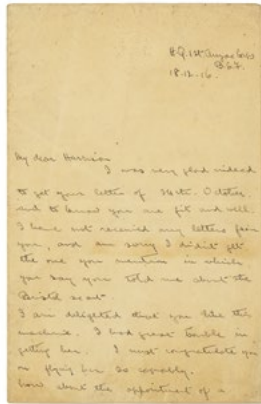 H.Q. 1st Anzac Corps
B.E.F.
18.12.16.
My dear Harrison
I was very glad indeed
to get your letter of October
and to know you are fit and well.
I have not received any letters from
you, and am sorry I didn't get
the one you mention in which
you say you told me about the
Bristol scout
I am delighted that you like the
machine. I had great trouble in
getting her. I must congratulate you
on flying her so
How about the appointment of a